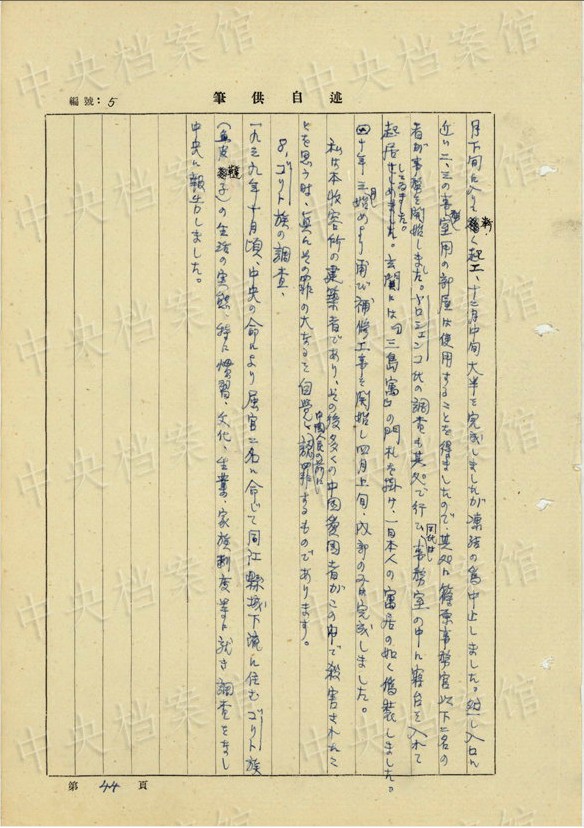 編號：5
筆供述自
月下旬に入り漸く起工、十二月中旬大半を完成しましたが凍結の為中止しました。然し入口に
近い二、三の事務室用の部屋は使用することを得ましたので、其処に篠原事務官以下二名の
者が事務を開始しました。ドロシェンコ氏の調査も其処で行ひ、同氏は事務室の中に寝台を入れて
起居してゐました。玄関には「三島寓」の門札を掛け、一日本人の寓居の如く偽装しました。
四十年三月始めより再び補修工事を開始し四月上旬、内部のみ完成しました。
私は本収容所の建築者であり、その後多くの中国愛国者がこの中で殺害されたこ
とを思ふ時、真にその罪の大なるを自覚し、中国人民の前に謝罪するものであります。
8、ゴリド族の調査、
一九三九年十月頃、中央の命により属官二名に命じて同江縣城下流に住むゴリド族
（魚皮韃子）の生活の実態、特に慣習、文化、生業、家族制度等に就き調査をまし
中央に報告しました。
第 44 頁
中央档案馆